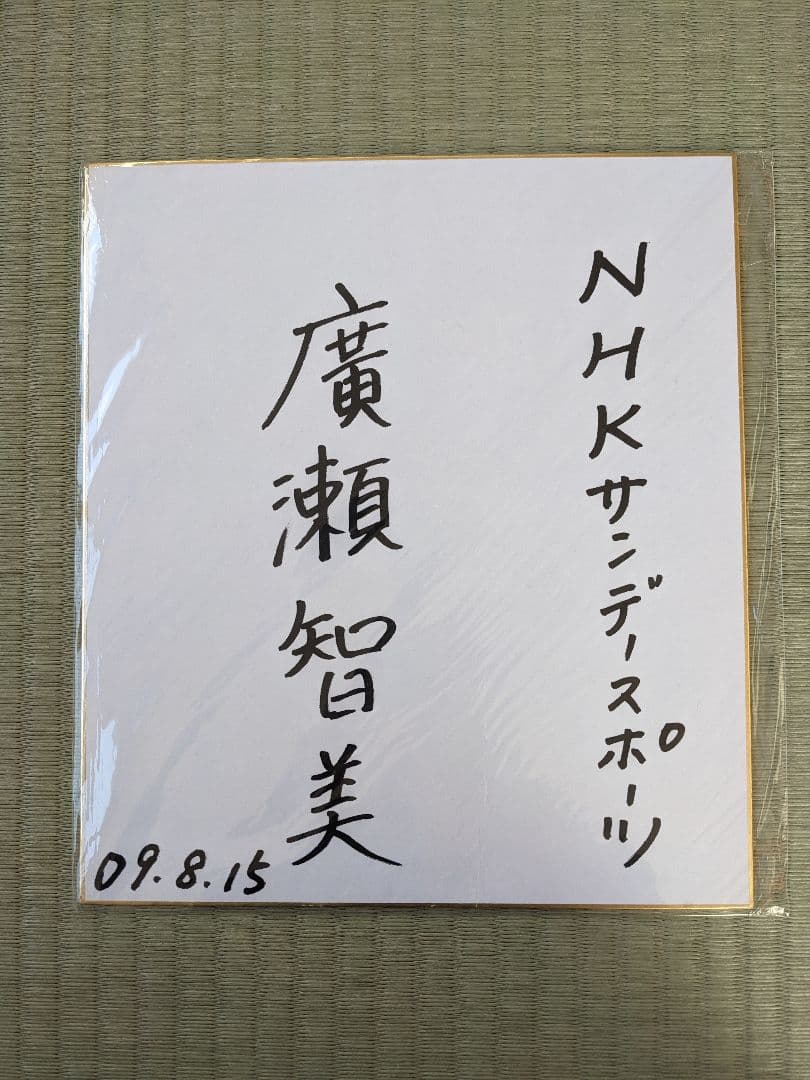 NHKサンデースポーツ
廣瀬智美
09.8.15